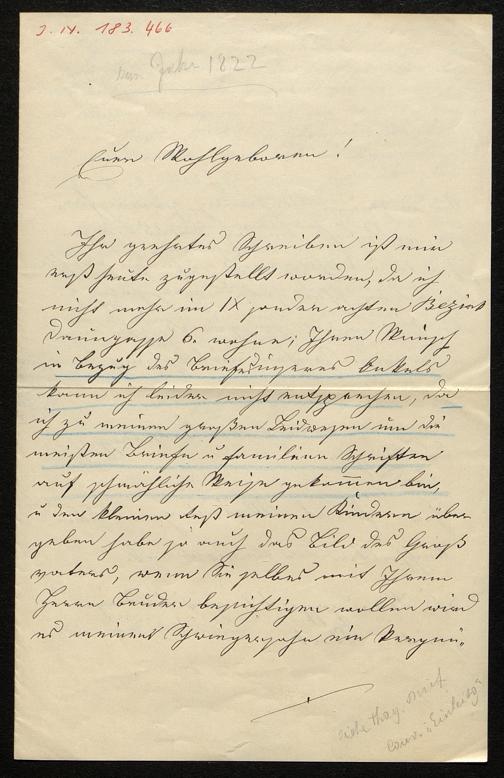 J. N. 183.466
im Jahr 1822
Euer Wohlgeboren!
Ihr geehrtes Schreiben ist mir
erst heute zugestellt worden, da ich
nicht mehr im IX sonder achten Bezirk
Daungasse 6. wohne; Ihren Wunsch
in Bezug des Briefes unseres Onkels
kann ich leider nicht entsprechen, da
ich zu meinen großen Leidwesen um die
meisten Briefe u Familien Schriften
auf schmähliche Weise gekommen bin,
u den kleinen Rest meinen Kindern über-
geben habe so auch das Bild des Groß
vaters, wenn Sie selbes mit Ihrem
Herrn Bruder besichtigen wollen wird
es meinem Schwiegersohn ein Vergnü-
siehe
"Einleitg"